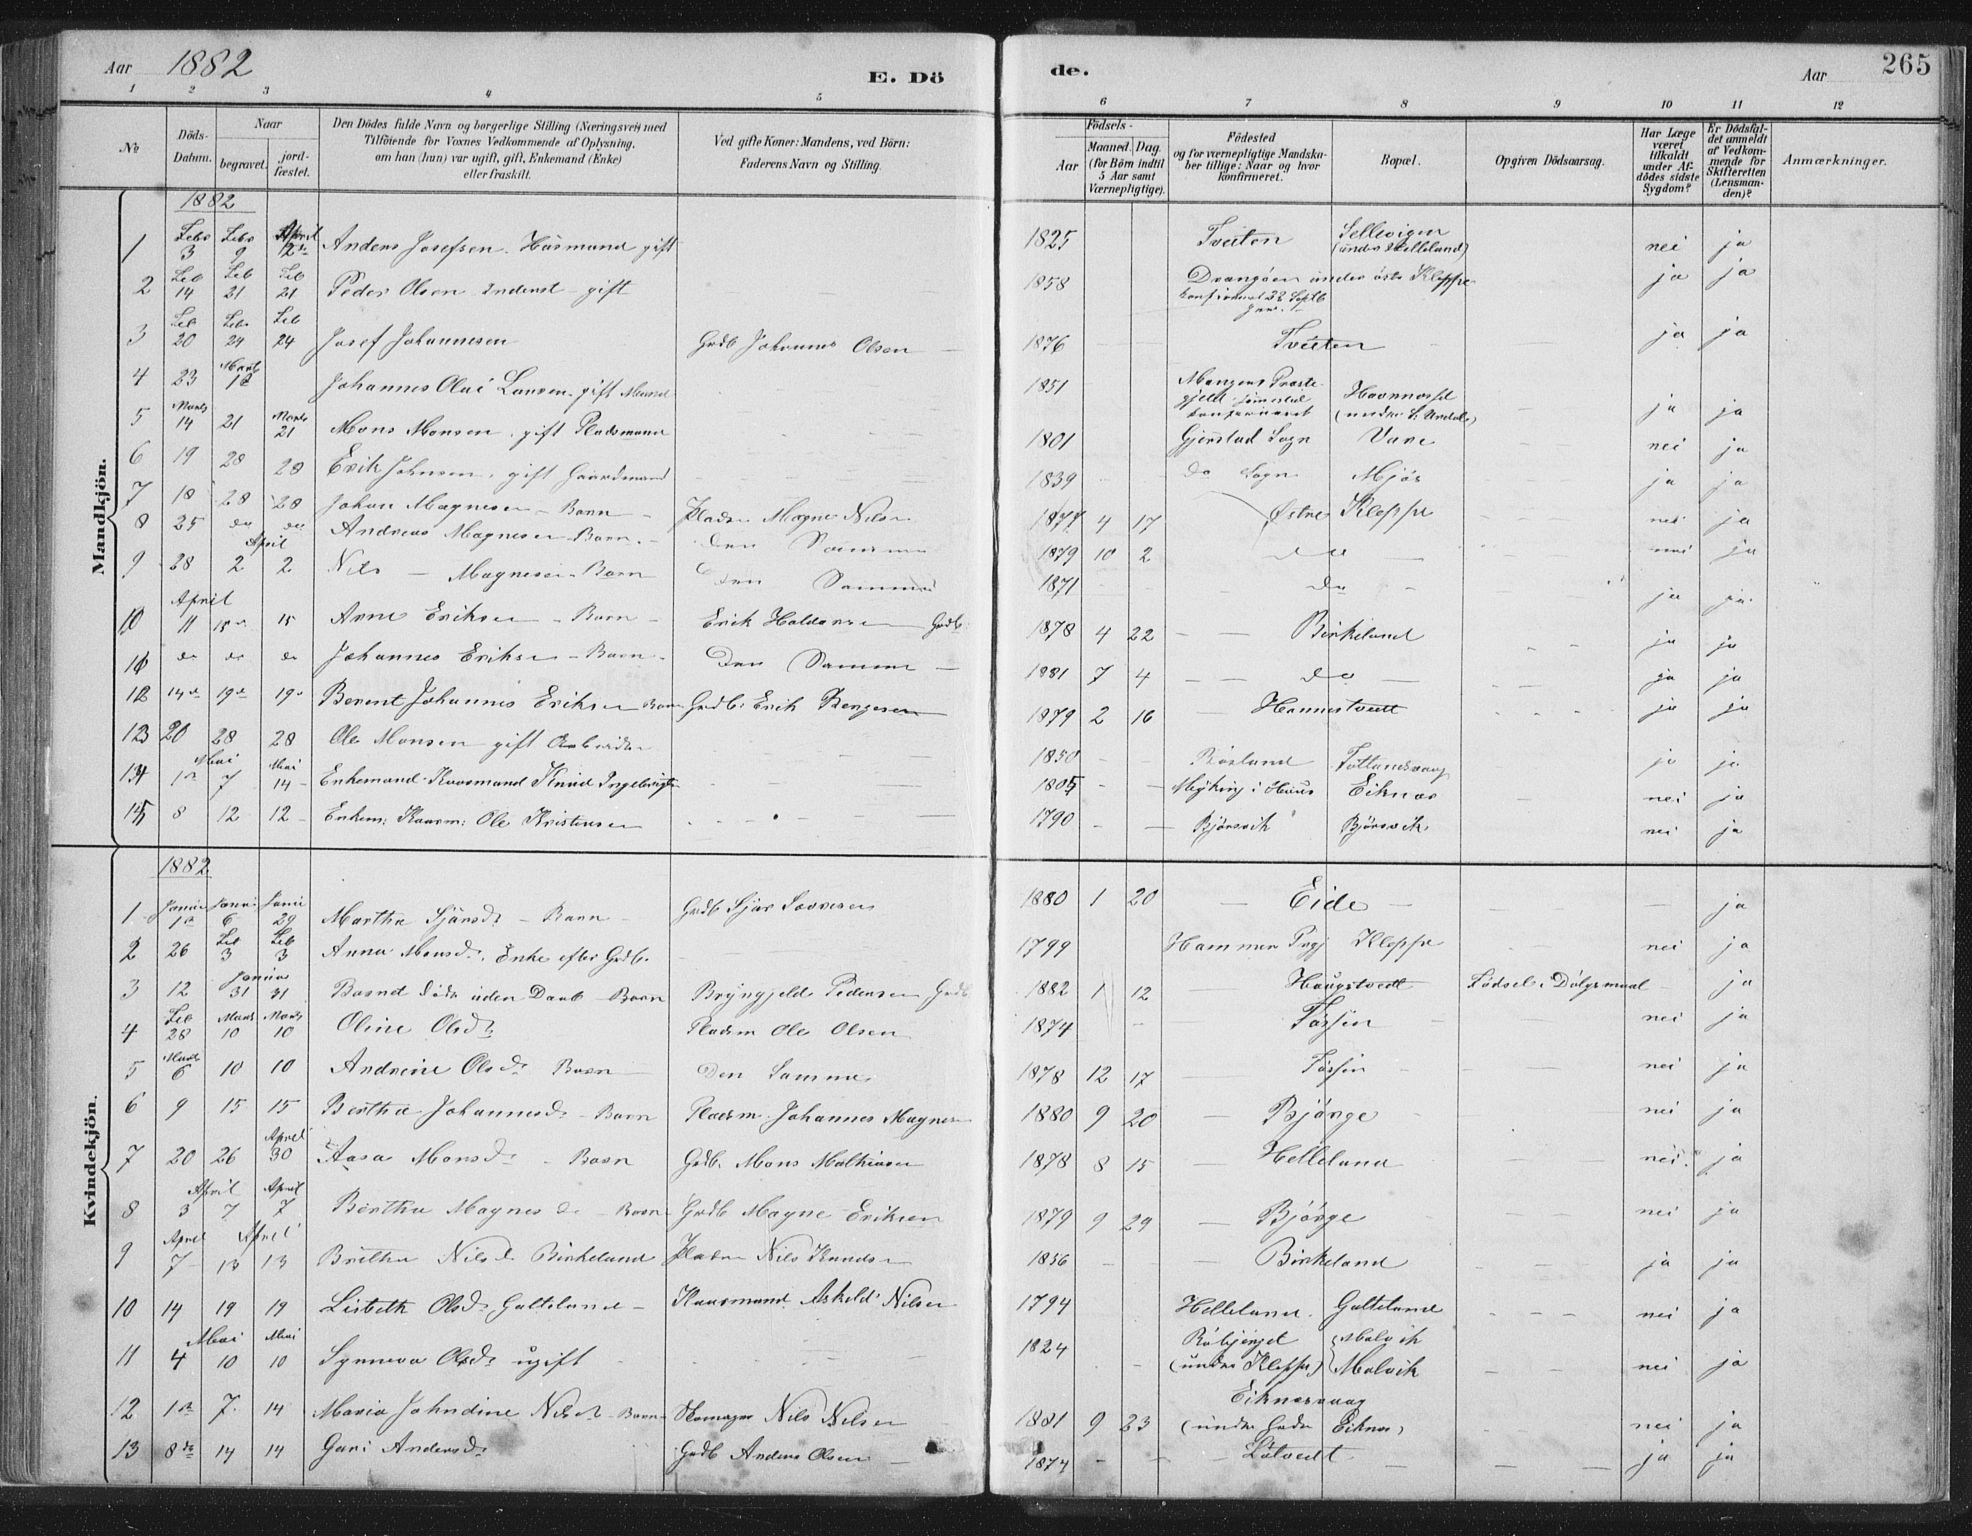 Aar 1882 E. Dö
de. Aar 265
1 2 3 4 5
6 7 8 9 10 11 12
No
Döds-Datum.
Naar
begravet.
jord-fæstet.
Den Dödes fulde Navn og borgerlige Stilling (Næringsvei) med
Tilföiende for Voxnes Vedkommende af Oplysning,
om han (hun) var ugift, gift, Enkemand (Enke)
eller fraskilt.
Ved gifte Koner: Mandens, ved Börn:
Faderens Navn og Stilling.
Födsels-
Aar
Maaned. Dag.
(for Börn indtil
5 Aar samt
Værnepligtige).
Födested
og for værnepligtige Mandska-
ber tillige: Naar og hvor
konfirmeret.
Bopæl.
Opgiven Dödsaarsag.
Har Læge
været
tilkaldt
under Af-
dødes sidste
Sygdom?
Er Dödsfal-
det anmeldt
af Vedkom-
mende for
Skifteretten
(Lensman-
den)?
Anmærkninger.
Mandkjön.
1882
1 Febr 3 Febr 9 April 12te Anders Josefsen Huusmand gift 1825 Tveiten Sellevigen (under Helleland) nei ja
2 Feb 14 Feb 21 Feb 21 Peder Olsen Inderst gift 1858 Drangöen under östre Kleppe ja ja
3 Feb 20 Feb 24 Feb 24 Josef Johannesen Grdb Johannes Olsen 1876 Tveiten ja ja
4 23 Marts 12 Johannes Olai Larsen gift Mand 1851 Mangers Præstegjeld ja ja
5 Marts 14 21 Marts 21 Mons Monsen gift Pladsmand 1801 Gjerstad Sogn Vare nei ja
6 19 28 28 Erik Johnsen gift Gaardmand 1839 do Sogn Mjös ja ja
7 18 28 28 Johan Magnesen Barn Pladsm Magne Nilsen 1877 4 17 Østre Kleppe nei ja
8 25 do do Andreas Magnesen Barn Den Samme 1879 10 2 do nei ja
9 28 April 2 2 Nils Magnesen Barn Den Samme 1871 do ja ja
10 April 11 15de 15 Arne Eriksen Barn Erik Haldorsen Grdb 1878 4 22 Birkeland ja ja
11 do do do Johannes Eriksen Barn Den Samme 1881 7 4 do ja ja
12 14de 19de 19de Berent Johannes Eriksen Barn Grdb. Erik Bergesen 1879 2 16 Hannestvedt ja ja
13 20 28 28 Ole Monsen gift Arbeider 1850 Rösland Totlandsvaag ja ja
14 Mai 1ste 7 Mai 14 Enkemand Kaarmand Knud Ingebrigtsen 1805 Mjyking i Haus Eiknæs nei ja
15 8 12 12 Enkem: Kaarm: Ole Kristensen 1790 Björsvik Björsvik nei ja
Kvindekjön.
1882
1 Januar 1ste Januar 6 Januar 29 Martha Sjursdr Barn Grdb Sjur Sørensen 1880 1 20 Eide ja
2 26 Feb 3 Feb 3 Anna Monsdr. Enke efter Grdb. 1799 Hammer Prgj Kleppe nei ja
3 12 Januar 31 31 Barnet døde uden Daab Barn Bryngjeld Pedersen Grdb 1882 1 12 Haugstvedt Födsel i Dölgsmaal ja
4 Feb 28 Marts 10 Marts 10 Oline Olsdr Pladsm Ole Olsen 1874 Fossen nei ja
5 Marts 6 10 10 Andrine Olsdr Barn Den Samme 1878 12 17 Fossen nei ja
6 9 15 15 Bertha Johannesdr Barn Pladsm. Johannes Magnesen 1880 9 20 Bjørge nei ja
7 20 26 April 30 Aasa Monsdr Barn Grdb. Mons Mathiasen 1878 8 15 Helleland nei ja
8 April 3 7 April 7 Bertha Magnesdr Barn Grdb Magne Eriksen 1879 9 29 Bjørge nei ja
9 April 7 April 13 13 Britha Nilsdr Birkeland Pladsm Nils Knudsen 1856 Birkeland ja ja
10 14 19 19 Lisbeth Olsdr Galteland Kaarmand Askeld Nilsen 1794 Helleland Galteland nei ja
11 Mai 4 10 Mai 10 Synneva Olsdr ugift 1824 (under Kleppe) Malvik Malvik nei ja
12 1ste 7 14 Maria Johndine Nilsdr Barn Skomager Nils Nilsen 1881 9 23 Eiknæsvaag (under Grdn Eiknes) nei ja
13 8de 14 14 Guri Andersdr Grdb Anders Olsen 1874 Lötvedt ja ja